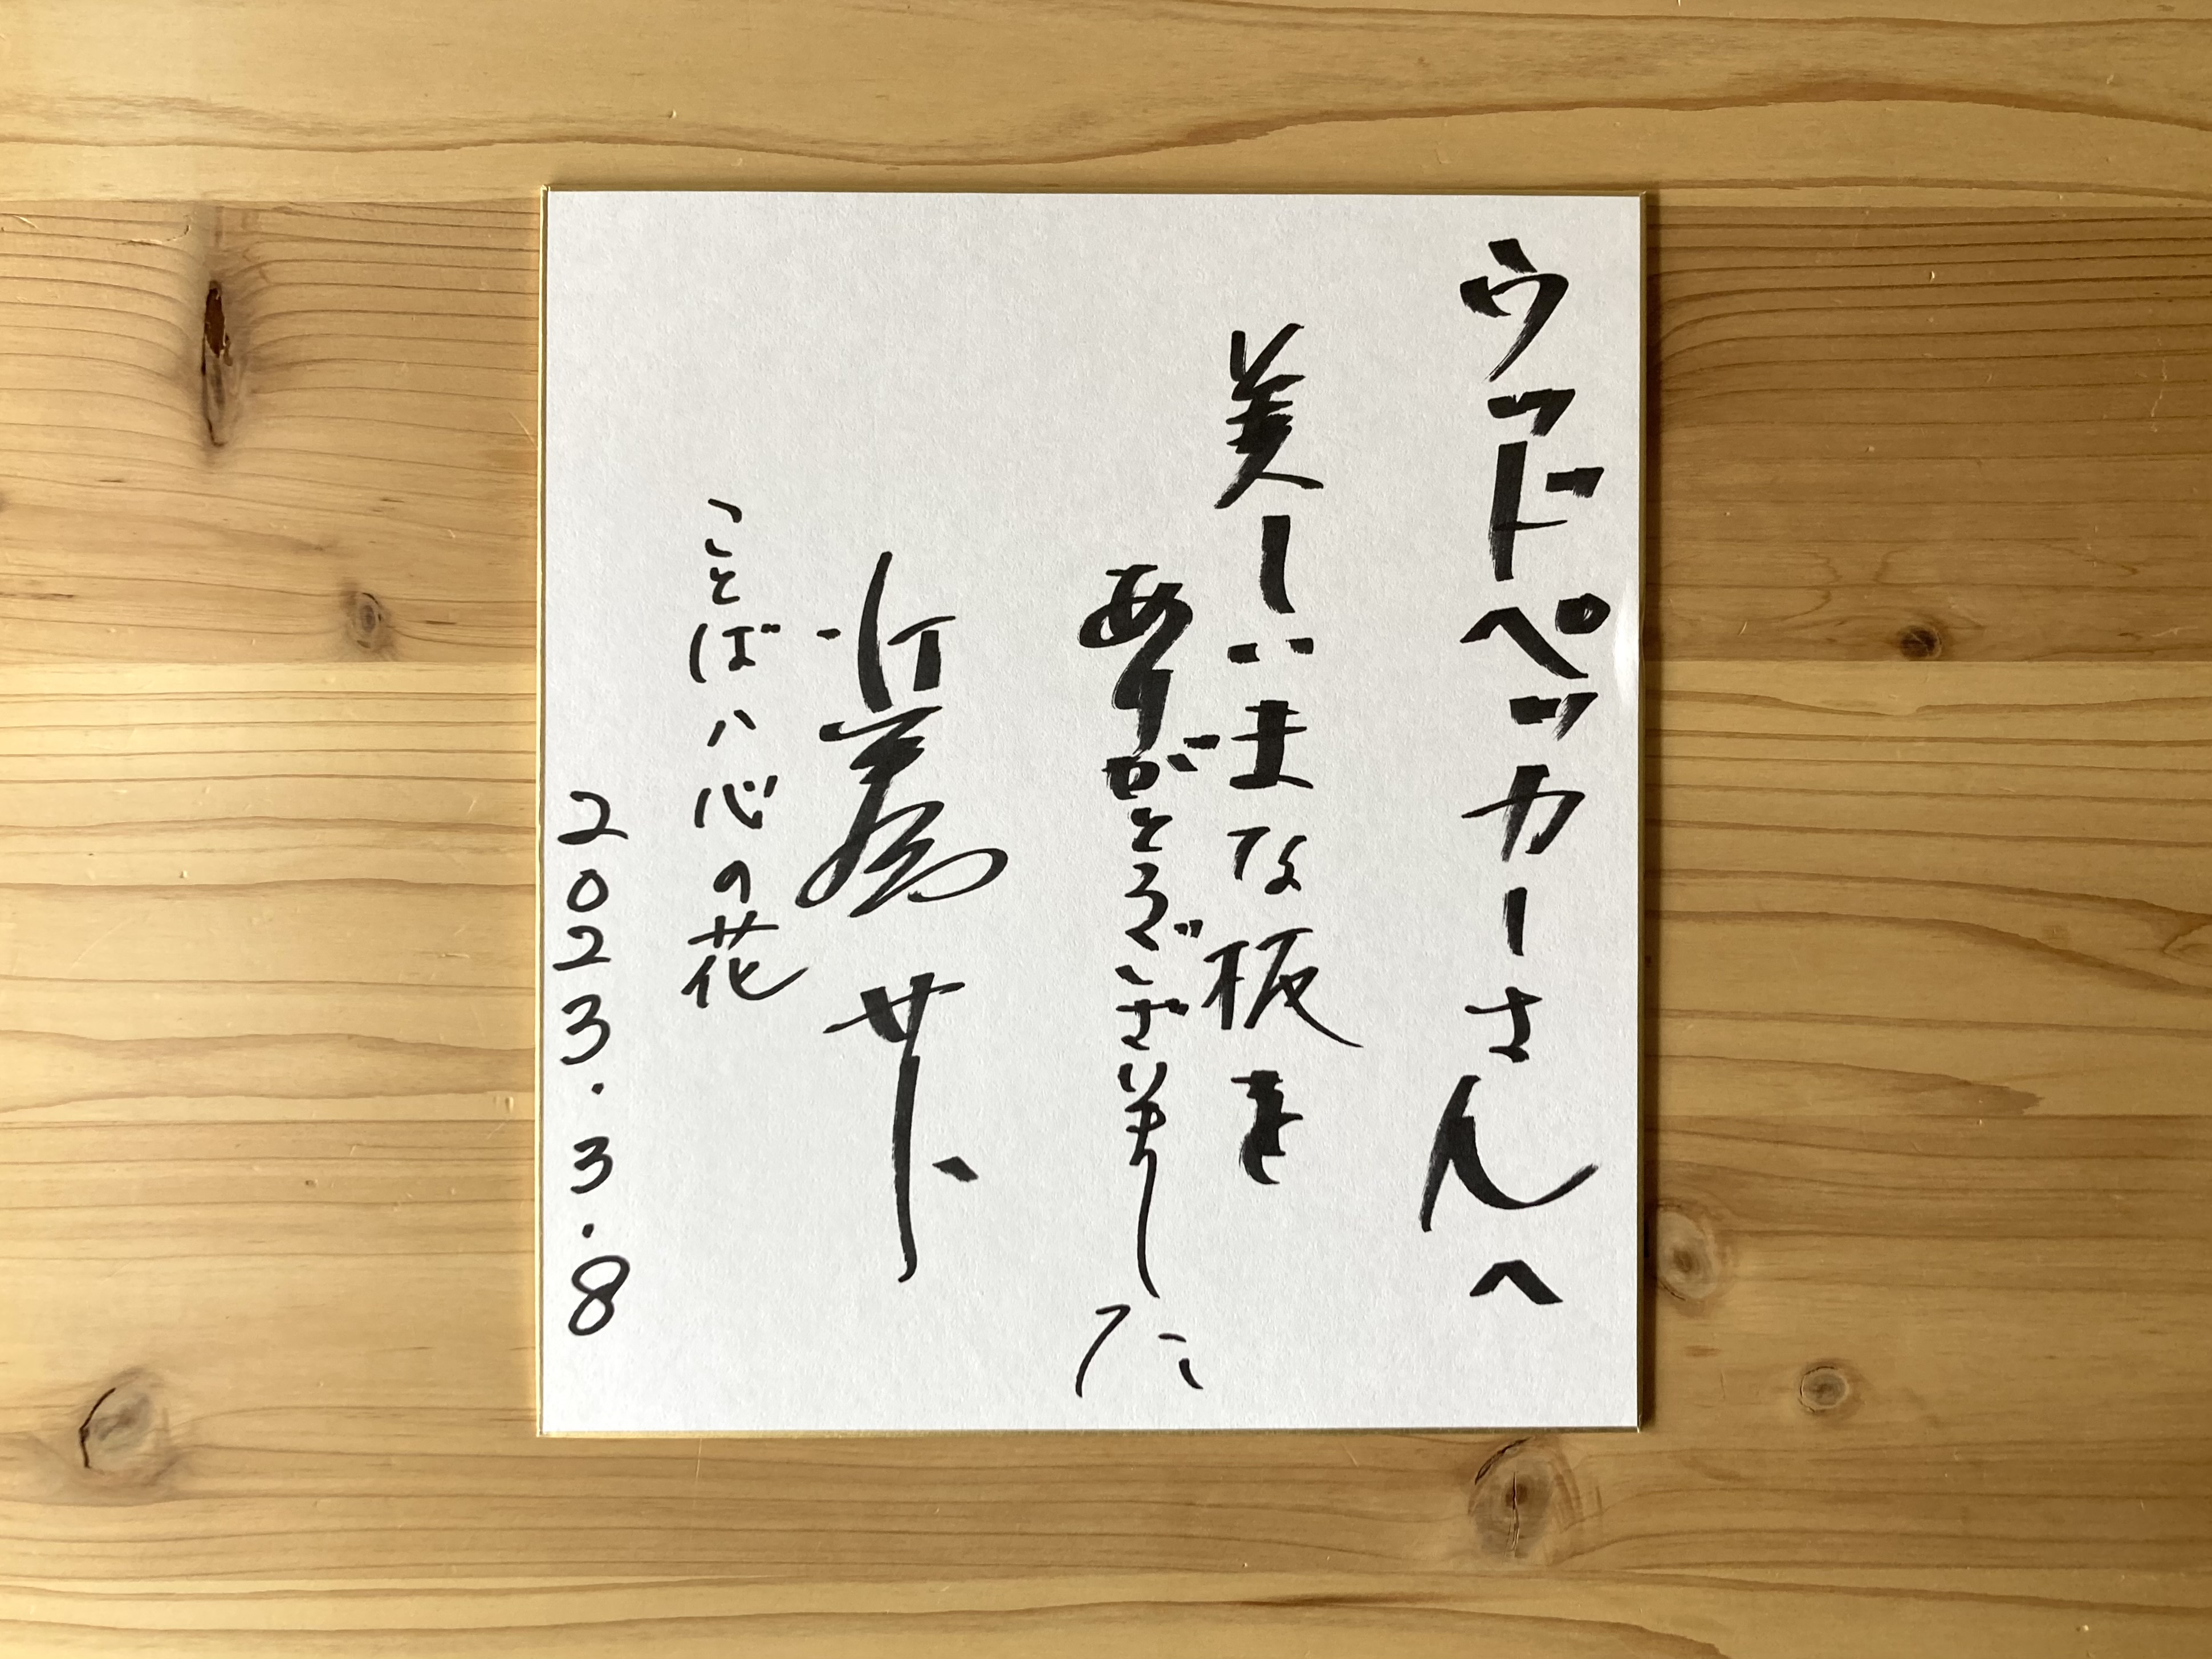 ウッドペッカーさんへ
美しいまな板を
ありがとうございました
近藤サト
ことばハ心の花
2023.3.8